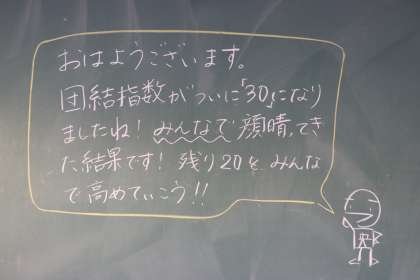 おはようございます。
団結指数がついに「30」になり
ましたね！みんなで顔晴ってき
た結果です！残り20をみんな
で高めていこう!!